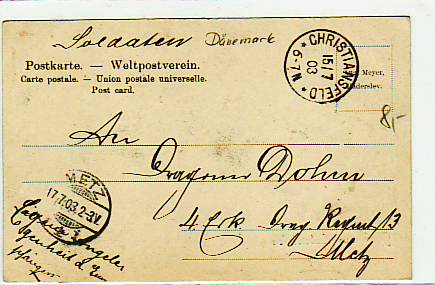 Soldaten Dänemark
Postkarte. — Weltpostverein.
Carte postale. — Union postale universelle.
Post card.
CHRISTIANSFELD
15/7
03
N 6-7
Meyer,
Haderslev.
8,-
An
Dragoner Dohm
4. Esk. Drag. Regiment 13
Metz
METZ
17.7.03.2-3V.